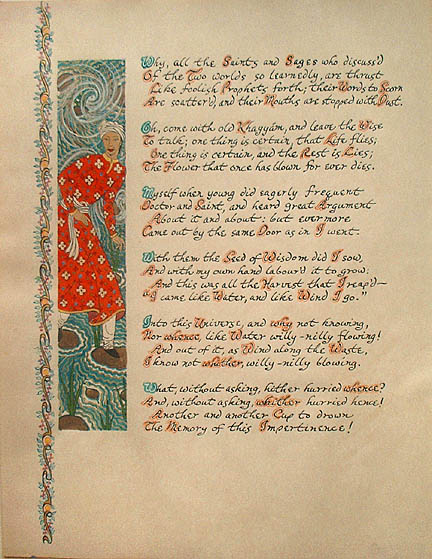 Why, all the Saints and Sages who discuss'd
Of the Two worlds so learnedly, are thrust
Like foolish Prophets forth; their Words to Scorn
Are scatter'd, and their Mouths are stopped with Dust.
Oh, come with old Khayyám, and leave the Wise
To talk; one thing is certain, that Life flies;
One thing is certain, and the Rest is Lies;
The Flower that once has blown for ever dies.
Myself when young did eagerly frequent
Doctor and Saint, and heard great Argument
About it and about: but evermore
Came out by the same Door as in I went.
With them the Seed of Wisdom did I sow,
And with my own hand labour'd it to grow:
And this was all the Harvest that I reap'd—
"I came like Water, and like Wind I go."
Into this Universe, and why not knowing,
Nor whence, like Water willy-nilly flowing!
And out of it, as Wind along the Waste,
I know not whither, willy-nilly blowing.
What, without asking, hither hurried whence?
And, without asking, whither hurried hence!
Another and another Cup to drown
The Memory of this Impertinence!